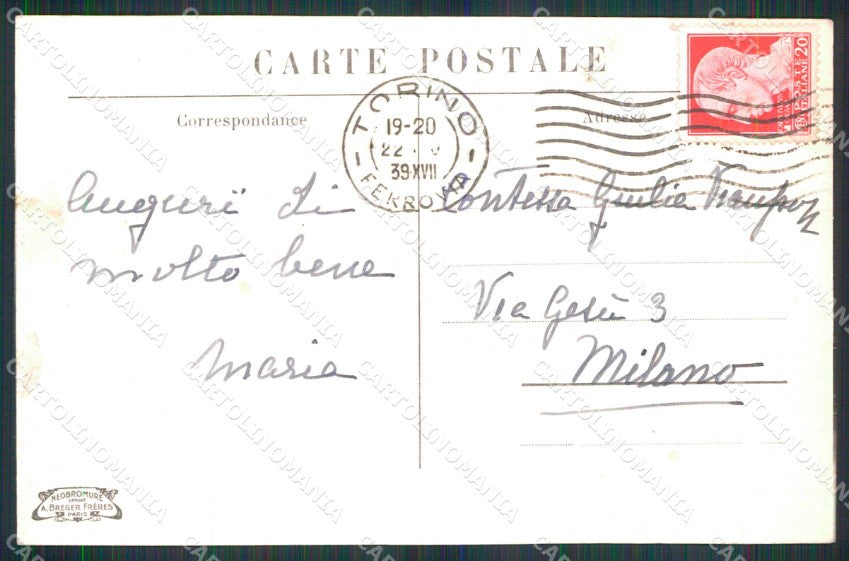 CARTE POSTALE
Correspondance
Adresse
TORINO
19-20
39·XVII
FERROVIA
POSTE
ITALIANE
20
Auguri di
molto bene
Maria
Contessa Giulia
Via Gesù 3
Milano
NEOBROMURE
A. BREGER FRÈRES
PARIS
CARTOLINOMANIA